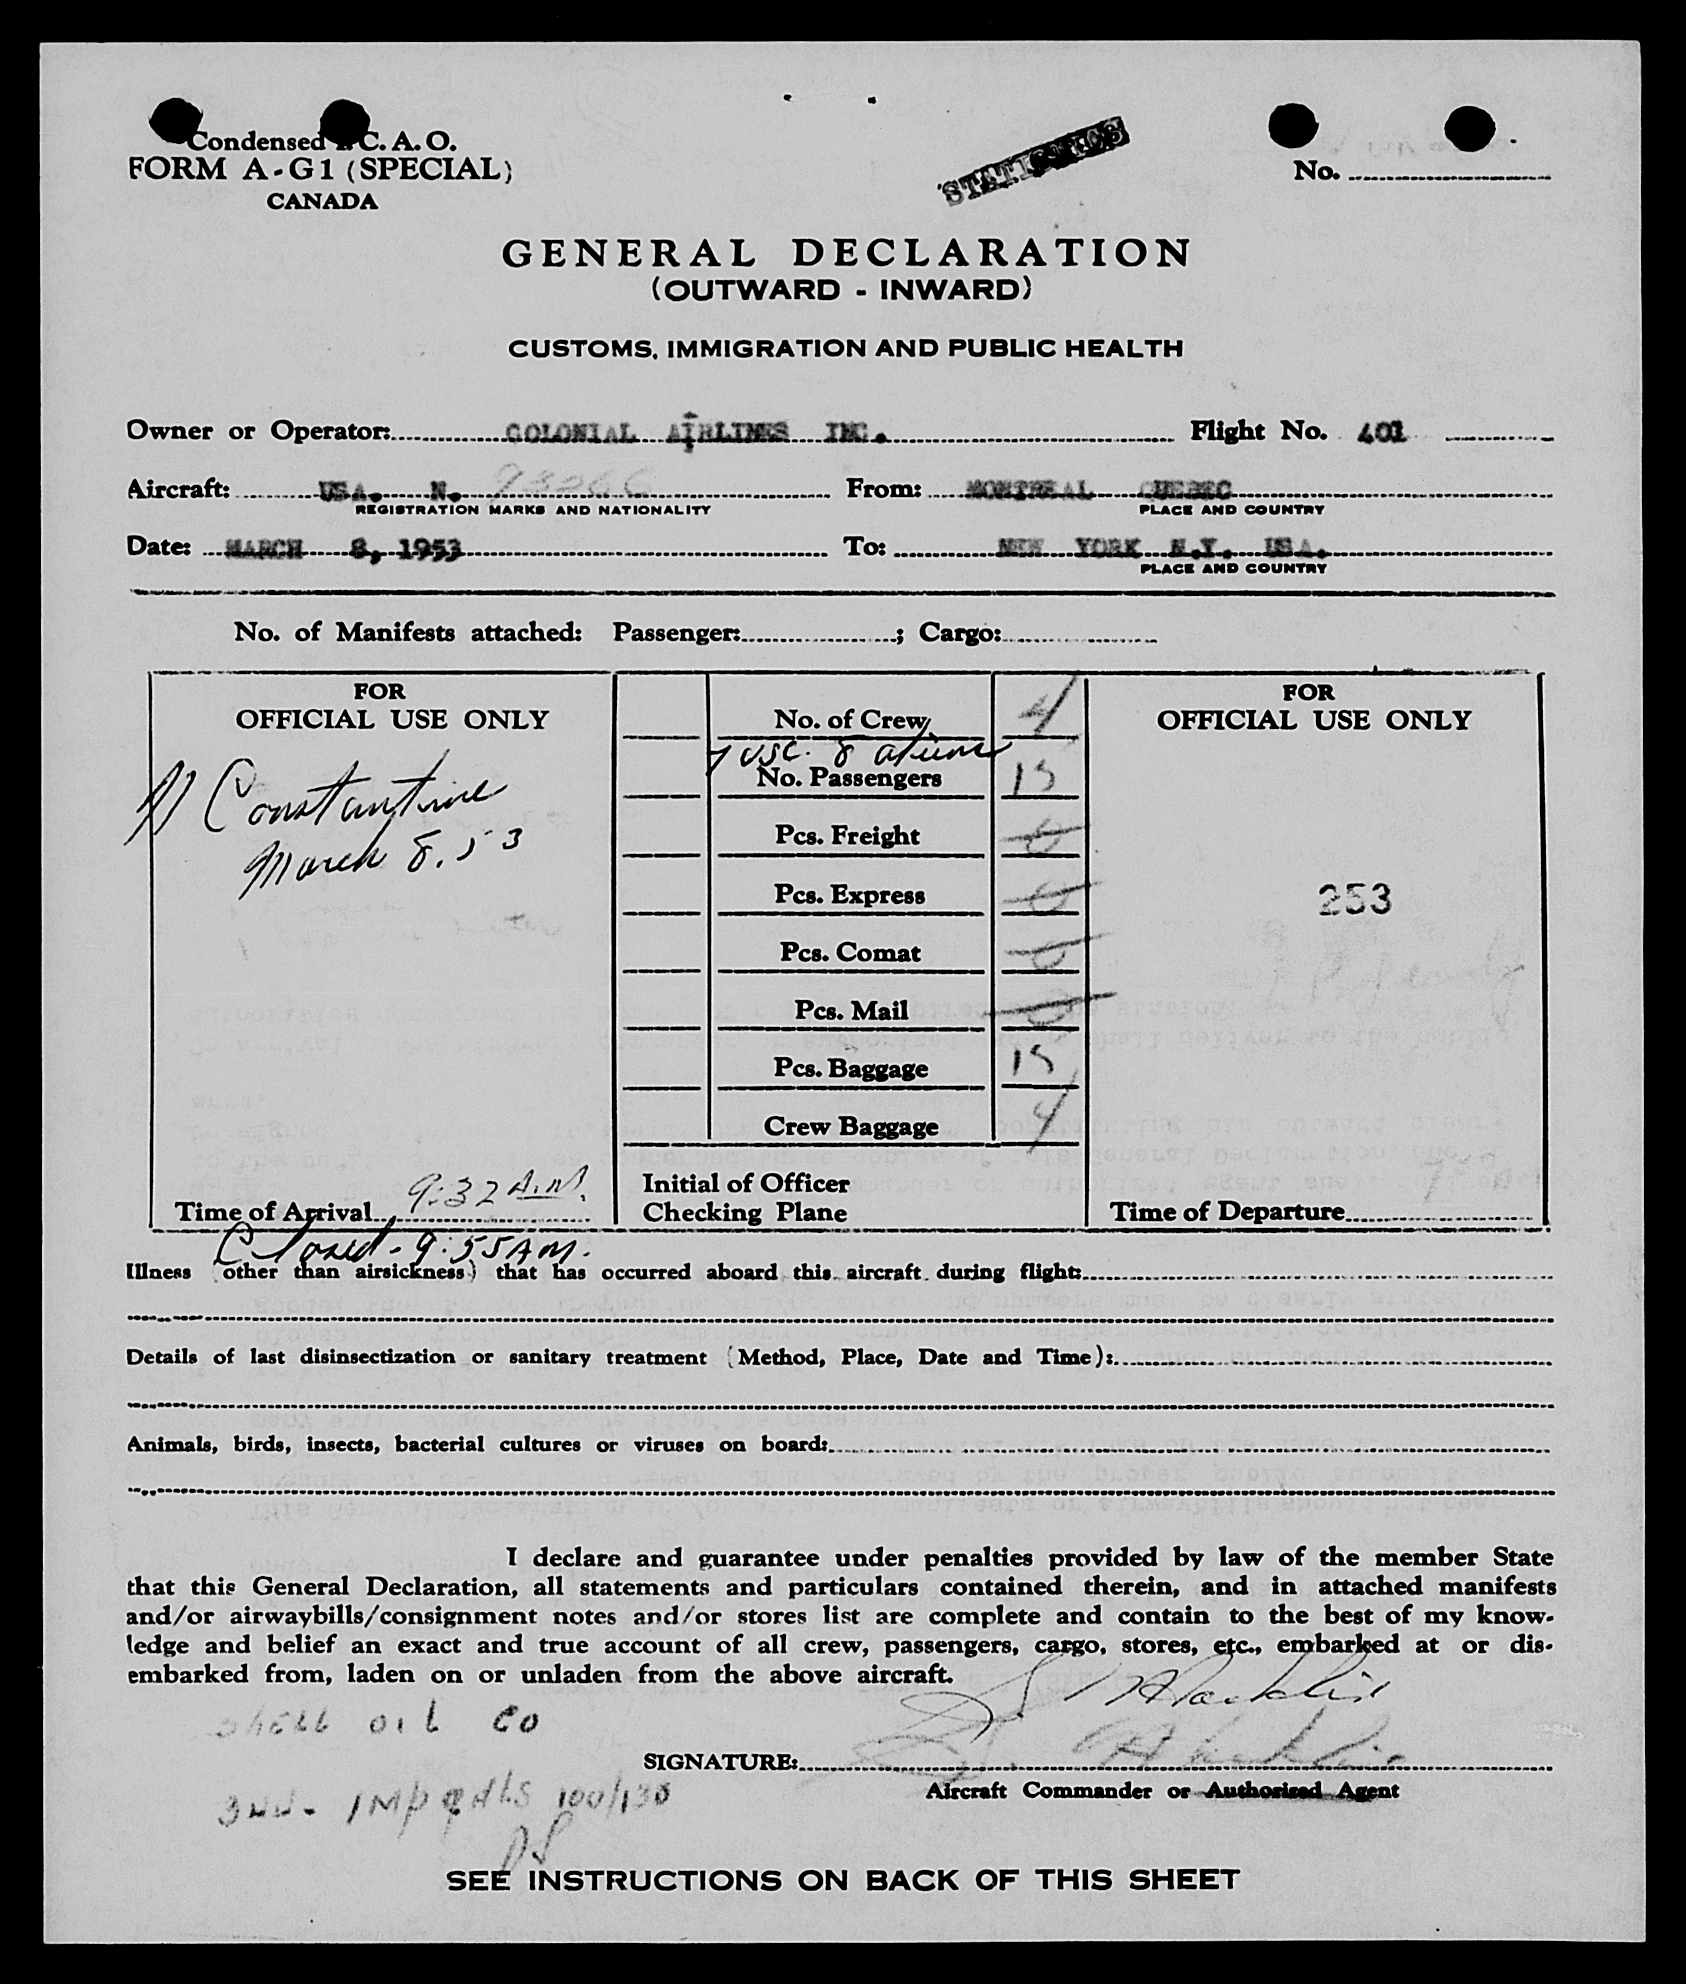 Condensed I. C. A. O.
FORM A-G1 (SPECIAL)
CANADA
STATISTICS
No.
GENERAL DECLARATION
(OUTWARD - INWARD)
CUSTOMS, IMMIGRATION AND PUBLIC HEALTH
Owner or Operator: COLONIAL AIRLINES INC. Flight No. 401
Aircraft: USA. N. 93266 From: MONTREAL QUEBEC
REGISTRATION MARKS AND NATIONALITY PLACE AND COUNTRY
Date: MARCH 8, 1953 To: NEW YORK N.Y. USA.
PLACE AND COUNTRY
No. of Manifests attached: Passenger: ; Cargo:
FOR
OFFICIAL USE ONLY
Constantine
March 8. 53
Time of Arrival 9:32 A.M.
Closed - 9:55 AM.
No. of Crew 4
7 USC. 8 aliens
No. Passengers 15
Pcs. Freight 0
Pcs. Express 0
Pcs. Comat 0
Pcs. Mail 0
Pcs. Baggage 15
Crew Baggage 4
Initial of Officer
Checking Plane
FOR
OFFICIAL USE ONLY
253
Time of Departure
Illness (other than airsickness) that has occurred aboard this aircraft during flight:
Details of last disinsectization or sanitary treatment (Method, Place, Date and Time):
Animals, birds, insects, bacterial cultures or viruses on board:
I declare and guarantee under penalties provided by law of the member State
that this General Declaration, all statements and particulars contained therein, and in attached manifests
and/or airwaybills/consignment notes and/or stores list are complete and contain to the best of my know-
ledge and belief an exact and true account of all crew, passengers, cargo, stores, etc., embarked at or dis-
embarked from, laden on or unladen from the above aircraft.
SHELL OIL CO
SIGNATURE:
Aircraft Commander or Authorized Agent
100/130
SEE INSTRUCTIONS ON BACK OF THIS SHEET